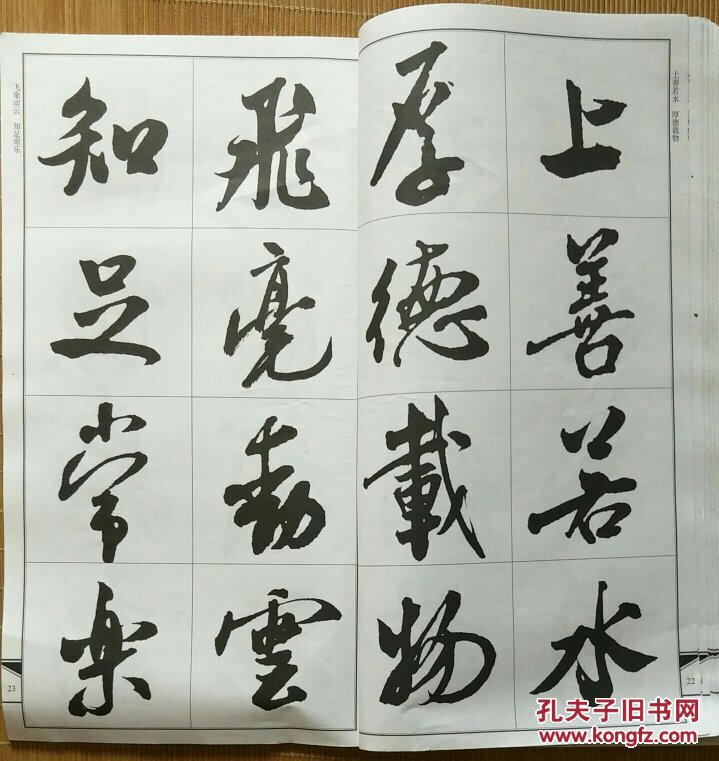 上善若水 厚德载物
上善若水
厚德載物
22
飞毫动云 知足常乐
飛毫動雲
知足常楽
23
孔夫子旧书网
www.kongfz.com